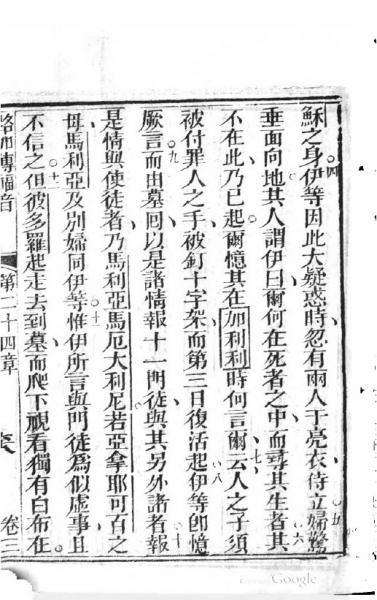 穌之身伊等因此大疑惑時忽有兩人于亮衣侍立婦驚
垂面向地其人謂伊曰爾何在死者之中而尋其生者其
不在此乃已起爾憶其在加利利時何言爾云人之子須
被付罪人之手被釘十字架而第三日復活起伊等卽憶
厥言而由墓囘以是諸情報十一門徒與其另外諸者報
是情與使徒者乃馬利亞馬厄大利尼若亞拿耶可百之
母馬利亞及別婦同伊等惟伊所言與門徒爲似虛事且
不信之但彼多羅起走去到墓而爬下視看獨有白布在
路加傳福音
第二十四章
卷三
四
五
六
七
八
九
十
十一
十二
Google